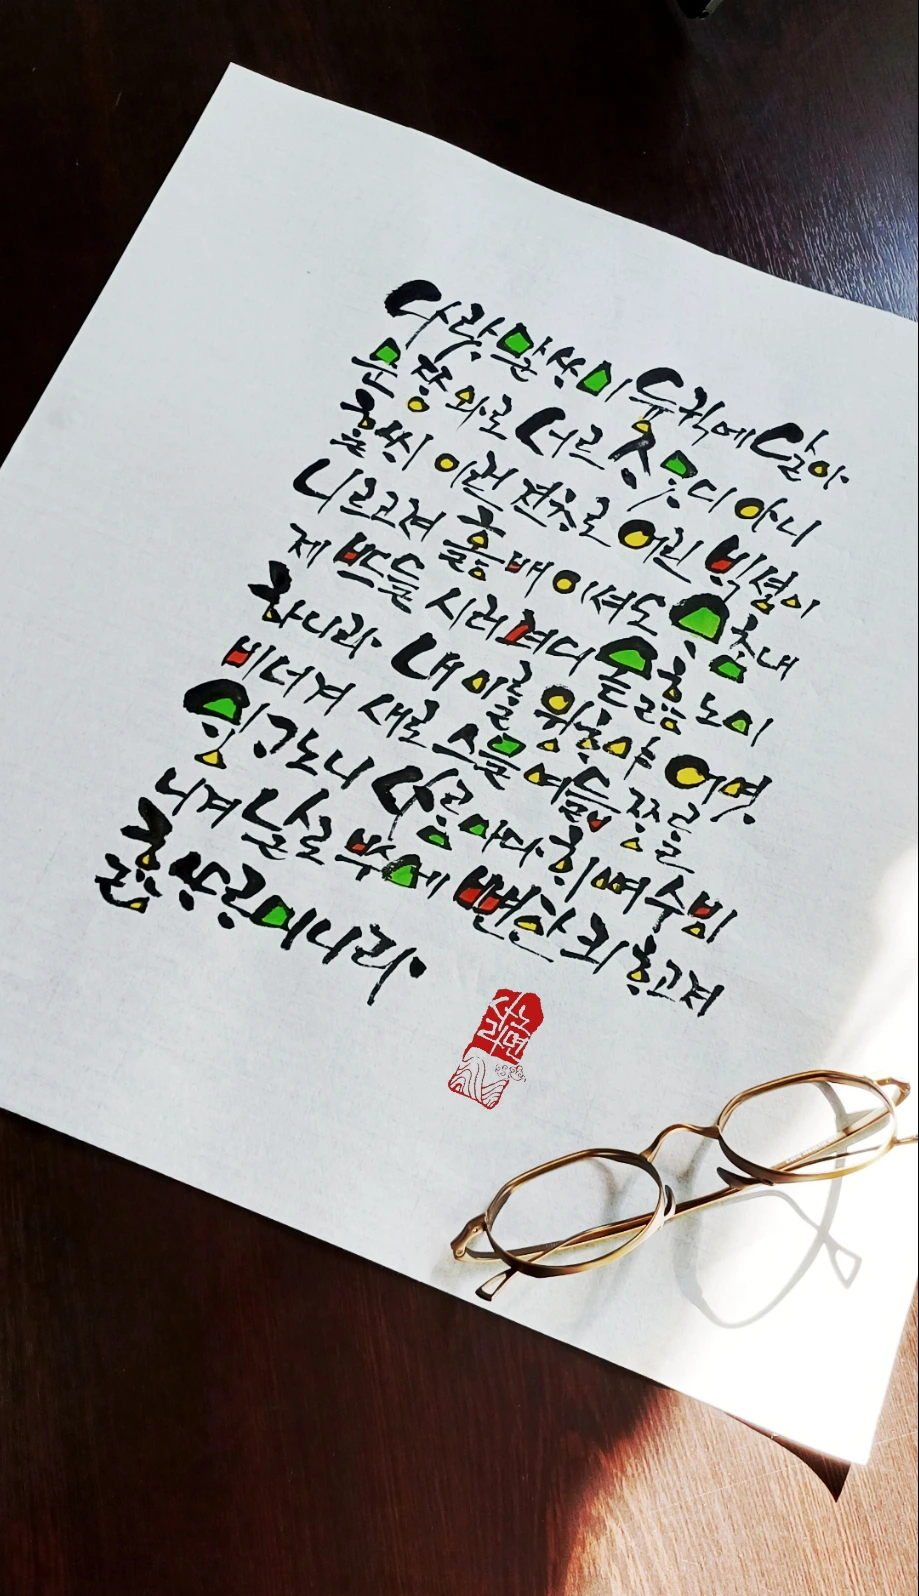 나랏말ᄊᆞ미 듕귁에 달아
문ᄍᆞᆼ와로 서르 ᄉᆞᄆᆞᆺ디 아니
ᄒᆞᆯᄊᆡ 이런 젼ᄎᆞ로 어린 ᄇᆡᆨ셩이
니르고져 ᄒᆞᇙ배 이셔도 ᄆᆞᄎᆞᆷ내
제 ᄠᅳ들 시러 펴디 몯ᄒᆞᇙ 노미
하니라 내 이ᄅᆞᆯ 윙ᄒᆞ야 어엿
비너겨 새로 스믈 여듧 ᄍᆞᆼᄅᆞᆯ
ᄆᆡᇰᄀᆞ노니 사ᄅᆞᆷ마다 ᄒᆡᅇᅧ 수ᄫᅵ
니겨 날로 ᄡᅮ메 뼌안킈 ᄒᆞ고져
ᄒᆞᇙ ᄯᆞᄅᆞ미니라
사노
라면